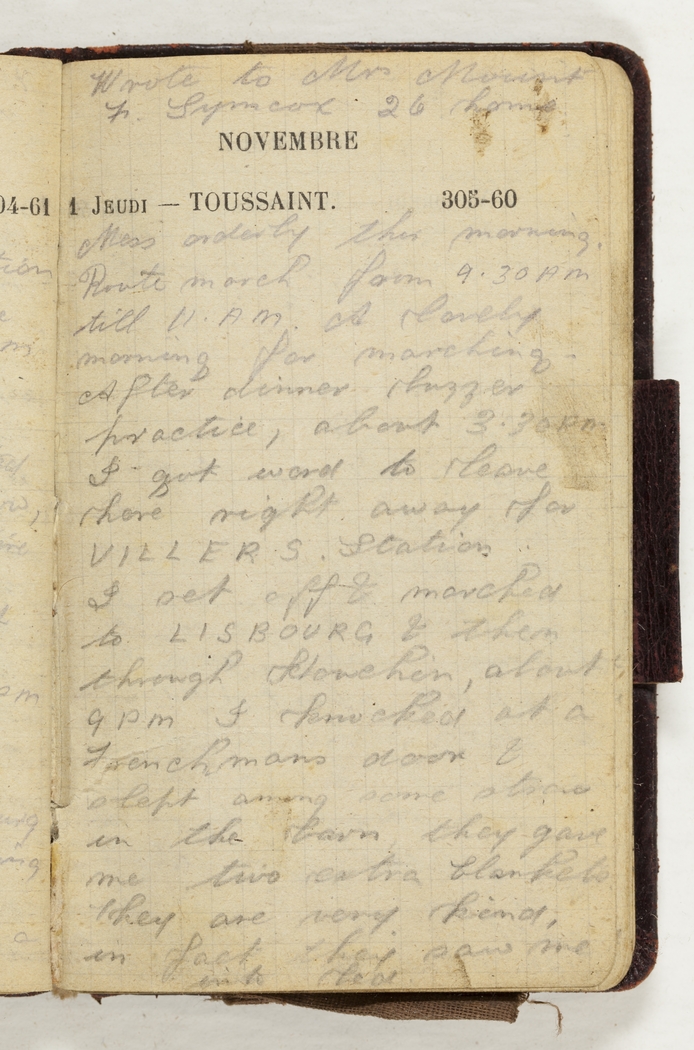 Wrote to Mrs Mounsit
F. Symcox 26 home
NOVEMBRE
04-61 1 JEUDI — TOUSSAINT. 305-60
Mess orderly this morning.
Route march from 9.30 AM
till 11. A M. A lovely
morning for marching.
After dinner buzzer
practice, about 3.30 PM
I got word to leave
here right away for
VILLERS. Station.
I set off & marched
to LISBOURG & then
through , about
9 PM I knocked at a
Frenchmans door &
slept among some straw
in the barn, they gave
me two extra blankets
They are very kind,
in fact they saw me
into bed